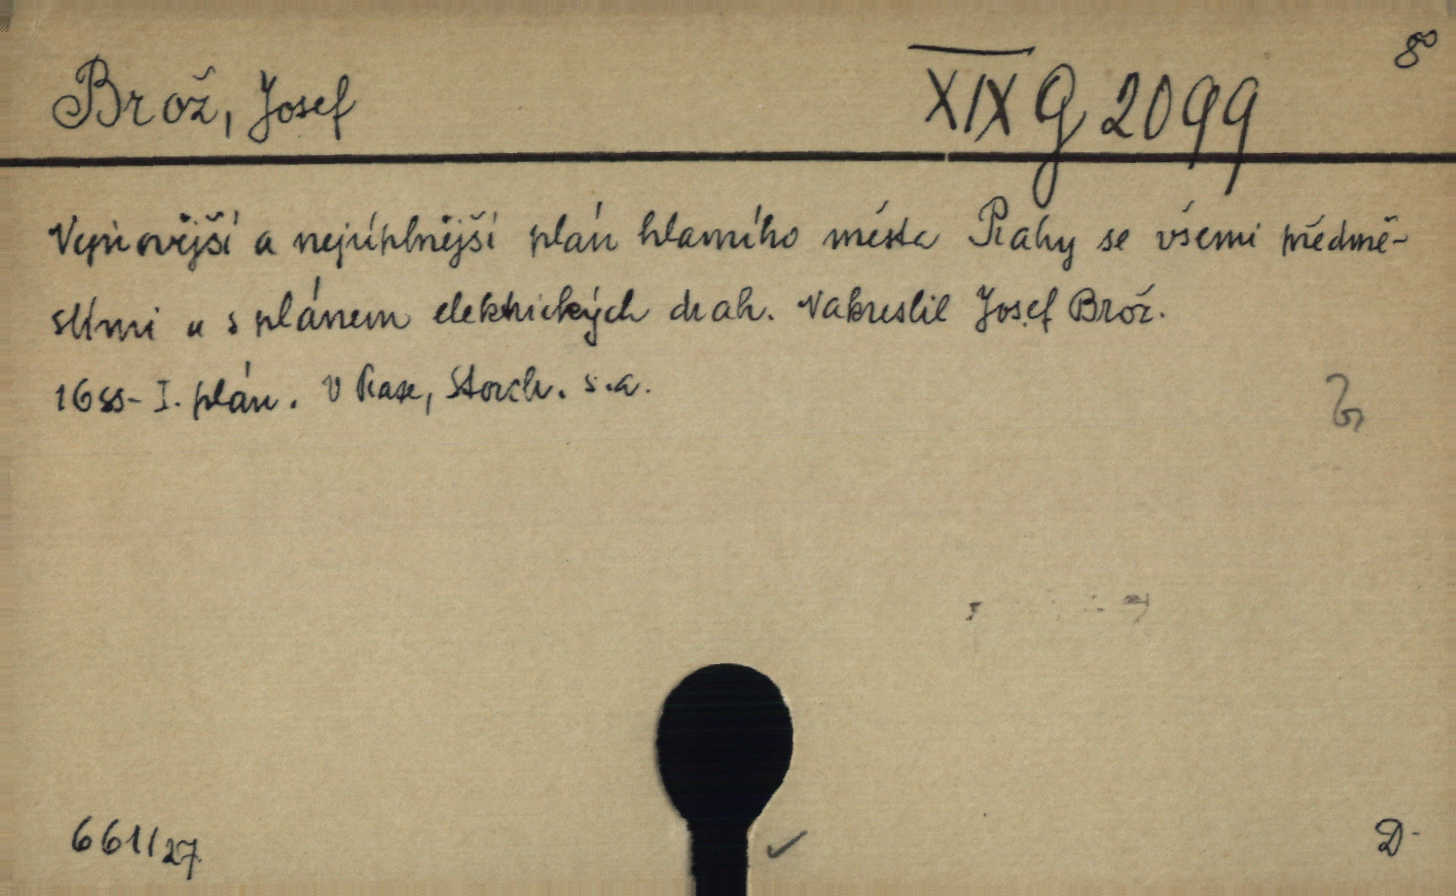 8°
Brož, Josef X̅I̅X̅ G 2099
Nejnovější a nejúplnější plán hlavního města Prahy se všemi předmě-
stími a s plánem elektrických drah. Nakreslil Josef Brož.
16 ss - I. plán. V Praze, Storch. s.a.
661/27
D.